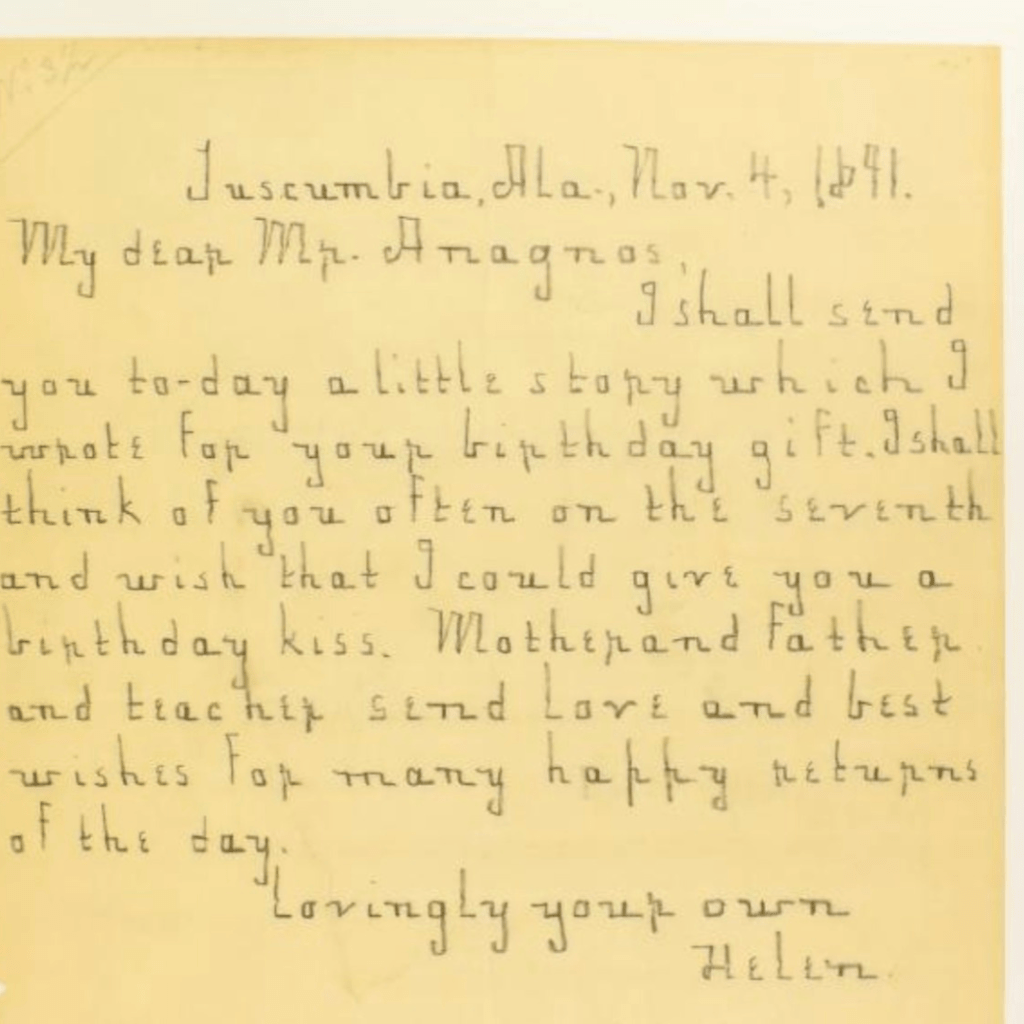 Tuscumbia, Ala., Nov. 4, 1891.
My dear Mr. Anagnos,
I shall send
you to-day a little story which I
wrote for your birthday gift. I shall
think of you often on the seventh
and wish that I could give you a
birthday kiss. Mother and father
and teacher send love and best
wishes for many happy returns
of the day.
Lovingly your own
Helen.